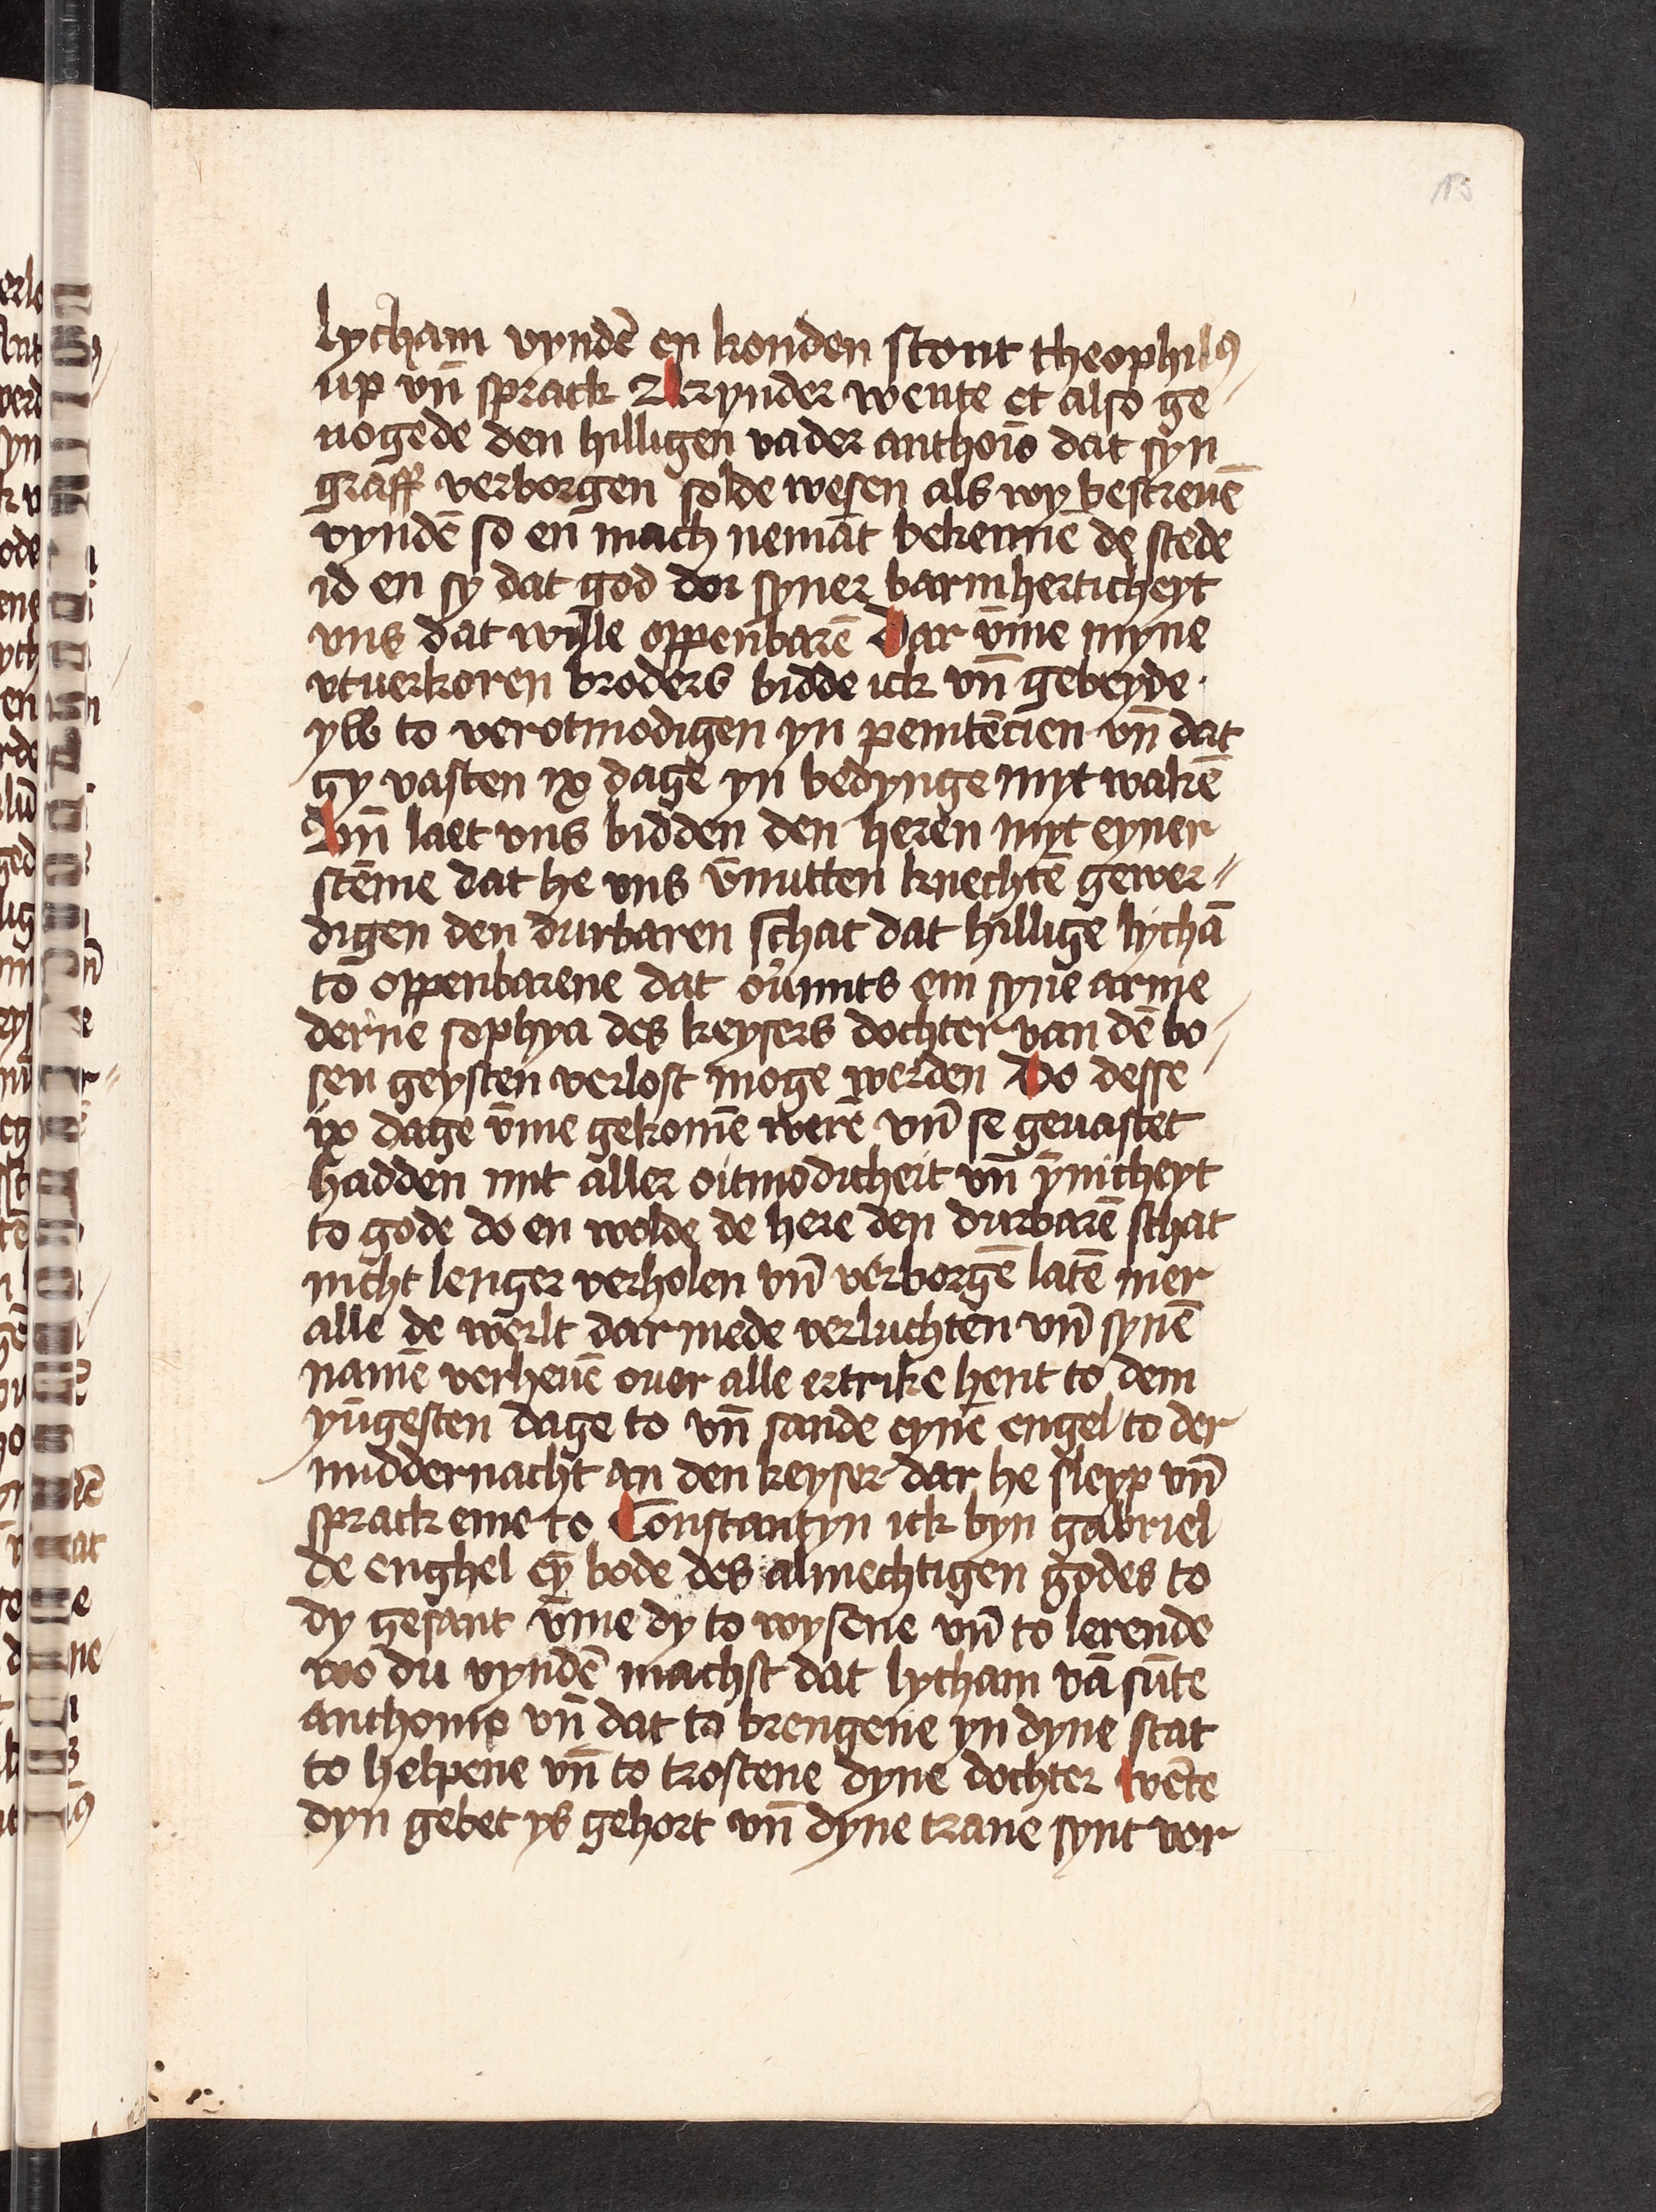 lycham vyndē en konden stont theophilꝰ
up vn̄ sprack Vrynder wente et also ge
uogede den hilligen vader anthoīo dat syn
graff verborgen solde wesen als wy bescreuē
vyndē so en mach nemāt bekenne de stede
id en sy dat god dor syner barmherticheyt
vns dat wille oppenbarē Dar v̄me myne
vtuerkoren broders bidde ick vn̄ gebeyde
yw to verotmodigen yn penitēcien vn̄ dat
gy vasten ix dage yn bedynge myt wakē
Vn̄ laet vns bidden den heren myt eyner
stēme dat he vns v̄nutten knechtē gewer
digen den durbaren schat dat hillige lychā
to oppenbarene dat ou̇mits em syne arme
derne sophya des keysers dochter van dē bo
sen geysten verlost moge werden Do desse
ix dage v̄me gekomē werē vn̄ se geuastet
hadden mit aller oitmodicheit vn̄ ȳnicheyt
to gode do en wolde de here den durbarē schat
nicht lenger verholen vn̄ verborgē latē mer
alle de werlt dar mede verluchten vn̄ synē
namē verheuē ouer alle ertrike hent to dem
yūgesten dage to vn̄ sande eynē engel to der
middernacht an den keyser dar he sleyp vn̄
sprack eme to Constantyn ick byn gabriel
de enghel eȳ bode des almechtigen godes to
dy gesant v̄me dy to wysene vn̄ to lerende
wo du vyndē machst dat lycham vā sūte
anthonio vn̄ dat to brengene yn dyne stat
to helpene vn̄ to trostene dyne dochter wēte
dyn gebet ys gehort vn̄ dyne trane synt vor